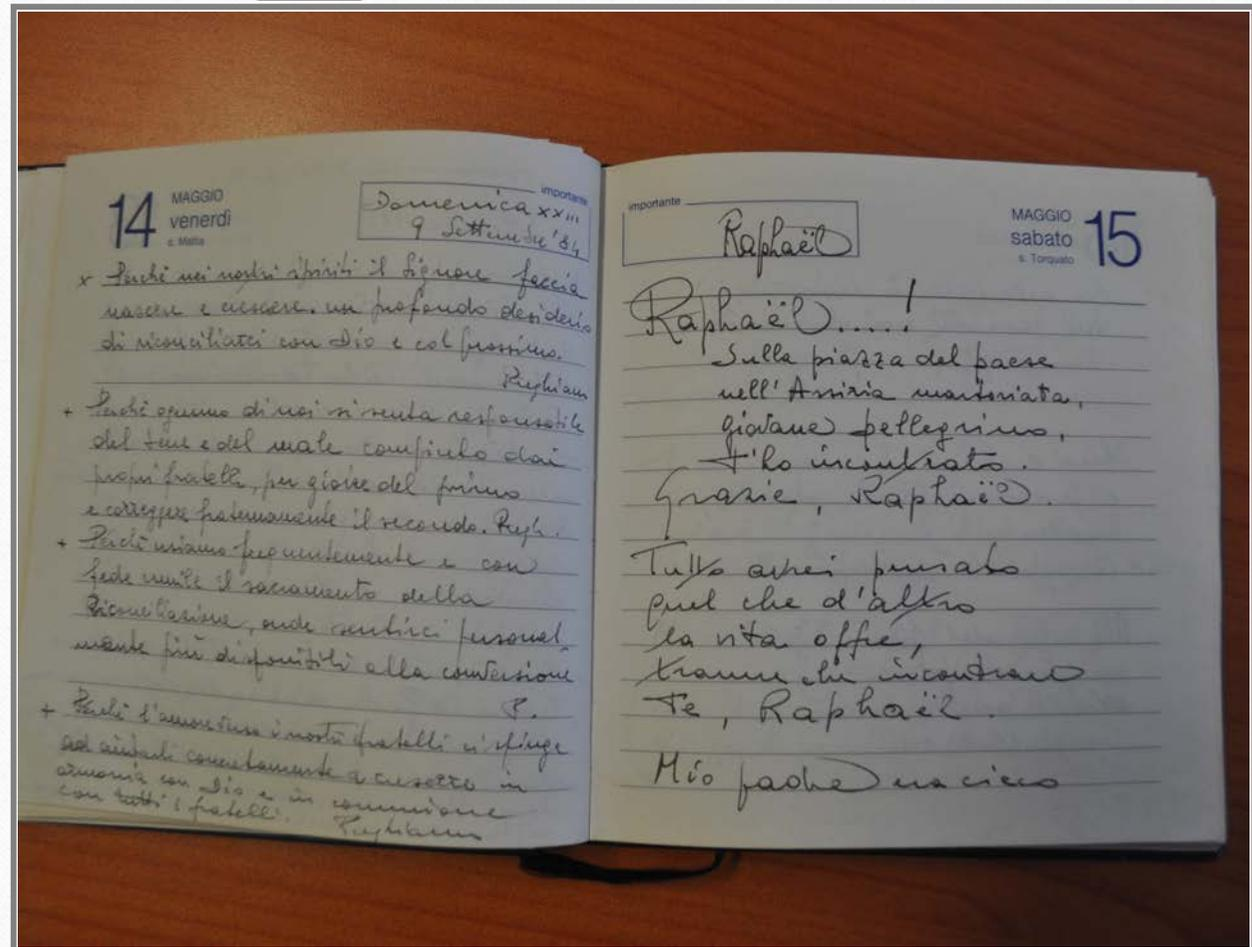 14
MAGGIO
venerdì
s. Mattia
importante
Domenica XXIII
9 Settembre '84
x Perché nei nostri spiriti il Signore faccia
nascere e crescere un profondo desiderio
di riconciliarci con Dio e col prossimo.
Preghiamo
+ Perché ognuno di noi si senta responsabile
del bene e del male compiuto dai
propri fratelli, per gioire del primo
e correggere fraternamente il secondo. Pregh.
+ Perché usiamo frequentemente e con
fede umile il sacramento della
Riconciliazione, onde sentirci personal
mente più disponibili alla conversione
P.
+ Perché l'amore verso i nostri fratelli ci spinge
ad aiutarli concretamente a crescere in
armonia con Dio e in comunione
con tutti i fratelli. Preghiamo
importante
Raphaël
MAGGIO
sabato
s. Torquato
15
Raphaël.....!
Sulla piazza del paese
nell'Assiria martoriata,
giovane pellegrino,
t'ho incontrato.
Grazie, Raphaël.
Tutto avrei pensato
quel che d'altro
la vita offre,
tranne che incontrare
Te, Raphaël.
Mio padre era cieco